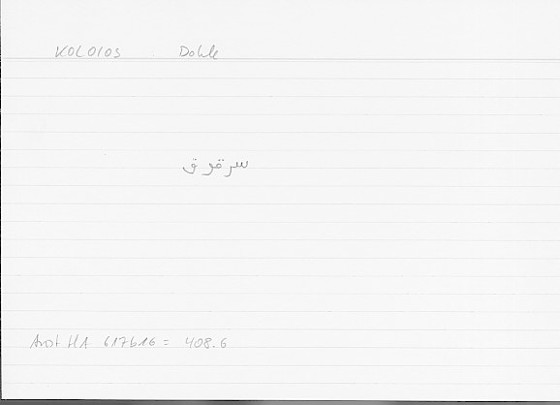 KOLOIOS Dohle
سرقوق
Arist HA 617b16 = 408.6